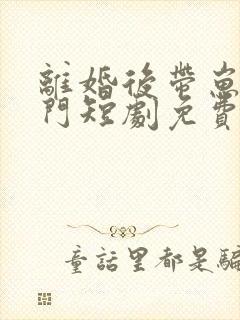 離婚後帶崽
門短劇免費
童話里都是騙